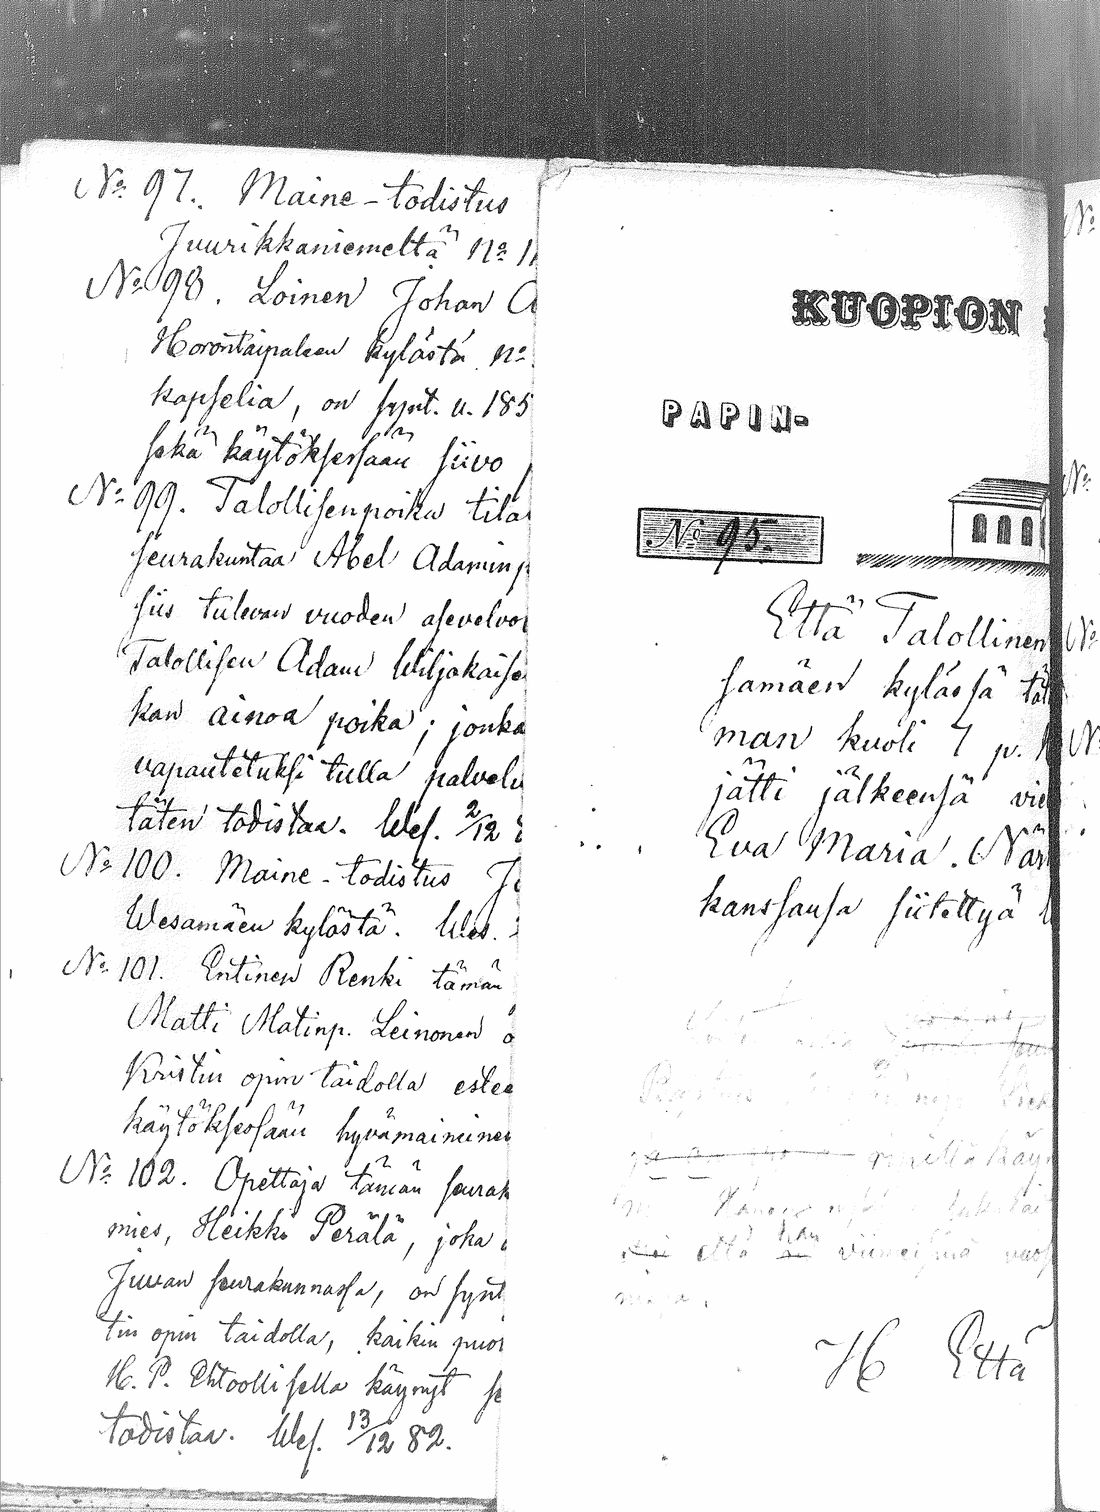 No 97. Maine-todistus
Juurikkaniemeltä No 1
No 98. Loinen Johan A
Horontaipaleen kylästä no
kapselia, on synt. u. 185
sekä käytöksessään siivo
No 99. Talollisenpoika tila
seurakuntaa Abel Adaminp
siis tulevan vuoden asevelvo
Talollisen Adam Wiljakaise
kan ainoa poika; jonka
vapautetuksi tulla palvelu
täten todistaa. Wes. 2/12
No 100. Maine-todistus J
Wesamäen kylästä. Wes.
No 101. Entinen Renki tämän
Matti Matinp. Leinonen o
Kristin opin taidolla estee
käytöksessään hyvämaininen
No 102. Opettaja tämän seurak
mies, Heikki Perälä, joka
Juvan seurakunnassa, on synt
tin opin taidolla, kaikin puo
H. P. Ehtoollisella käynyt se
todistaa. Wes. 13/12 82.
KUOPION
PAPIN-
No 95.
Että Talollinen
samäen kylässä tä
man kuoli 7 p.
jätti jälkeensä vie
Eva Maria. När
kanssansa siitettyä
että hän viimeisinä vuos
H Että
No
No
No
No